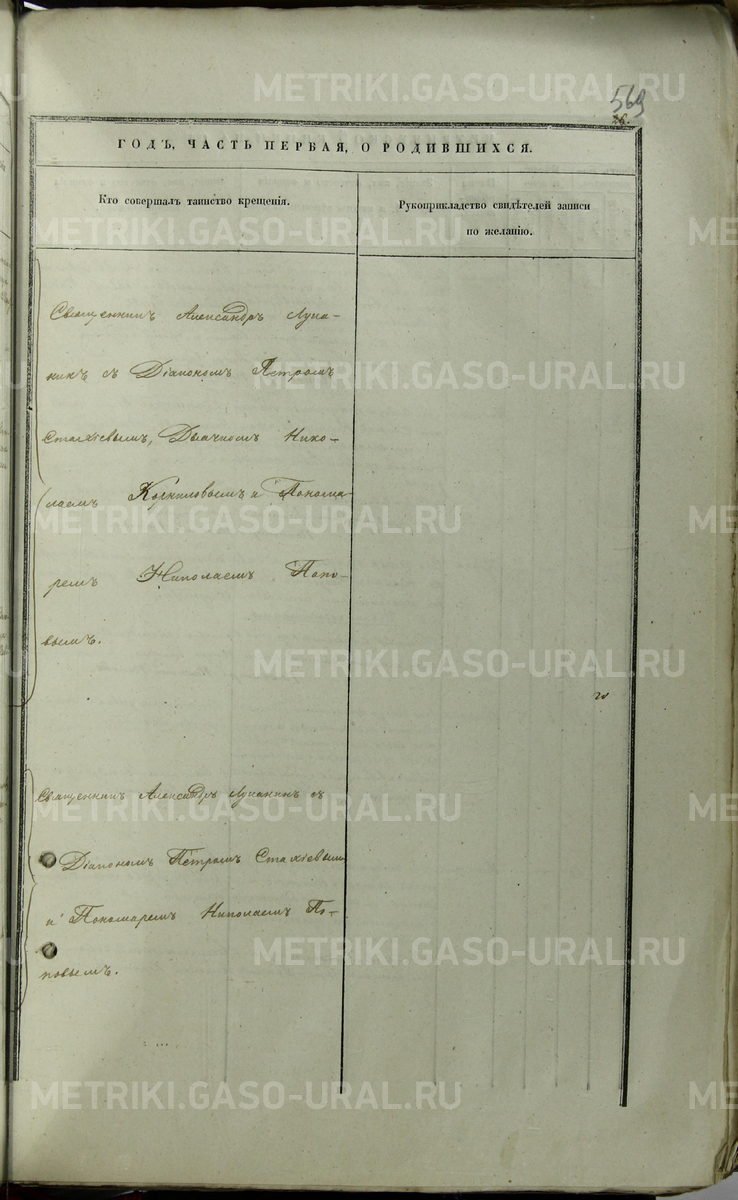 569
26.
ГОДЪ, ЧАСТЬ ПЕРВАЯ, О РОДИВШИХСЯ.
Кто совершалъ таинство крещенія.
Рукоприкладство свидѣтелей записи
по желанію.
Священникъ Александръ Лука-
нинъ съ Діакономъ Петромъ
Стахіевымъ, Дьячкомъ Нико-
лаемъ Корниловымъ и Понома-
ремъ Николаемъ Попо-
вымъ.
Священникъ Александръ Луканинъ съ
Діакономъ Петромъ Стахіевымъ
и Пономаремъ Николаемъ По-
повымъ.
METRIKI.GASO-URAL.RU